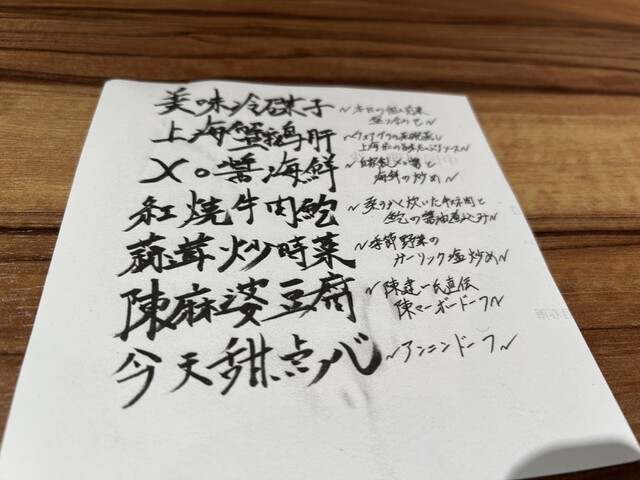 美味冷碟子
~本日の前菜
盛り合わせ~
上海蟹鶏肝
上海蟹の
ソース~
XO醬海鮮
~自家製XO醬と
海鮮の炒め~
紅燒牛肉鮑
~柔らかく炊いた牛肉と
鮑の醤油煮込み~
蒜茸炒時菜
~季節野菜の
ガーリック塩炒め~
陳麻婆豆腐
~陳建一氏直伝
陳マーボードーフ~
今天甜点心
~アンニンドーフ~